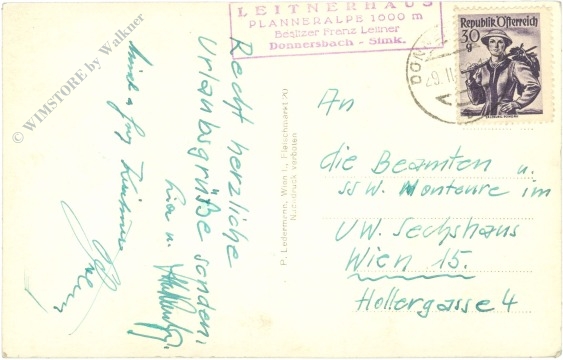 LEITNERHAUS
PLANNERALPE 1000 m
Besitzer Franz Leitner
Donnersbach - Stmk.
Republik Österreich
30
g
SALZBURG, PONGAU
DONN
29. II.
© WIMSTORE by Walkner
Recht herzliche
Urlaubsgrüße senden,
u.
P. Ledermann, Wien I., Fleischmarkt 20
Nachdruck verboten
An
die Beamten u.
SSW. Monteure im
UW. Sechshaus
Wien 15.
Hollergasse 4